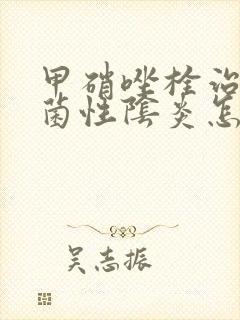 甲硝唑栓治
菌性陰炎怎
吴志振